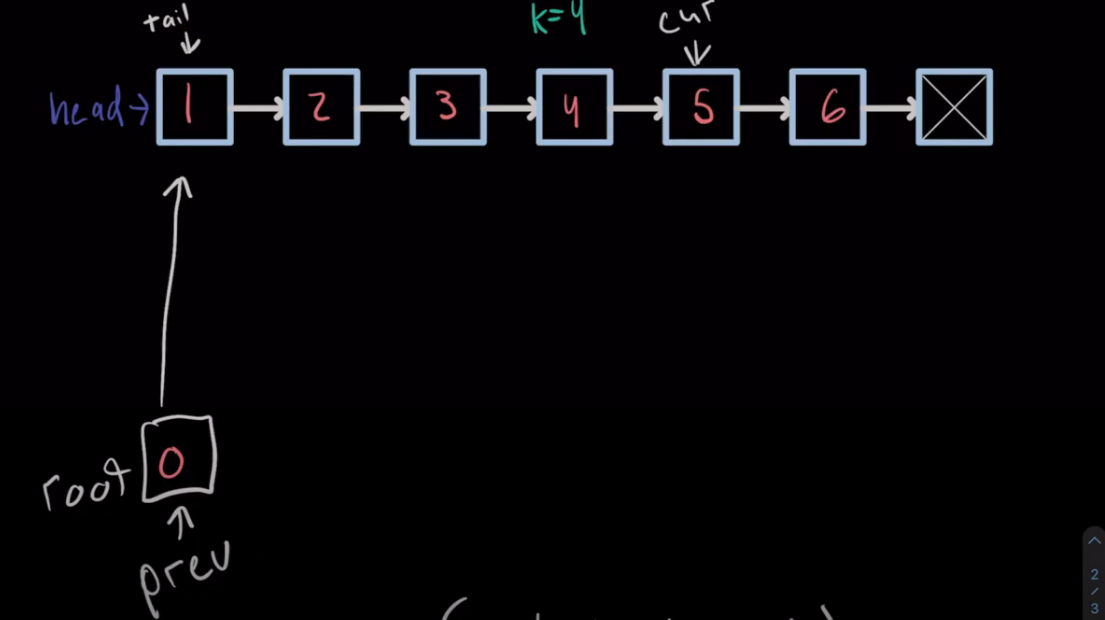 tail k=4 cur
head 1 2 3 4 5 6
root 0
prev
2
/
3